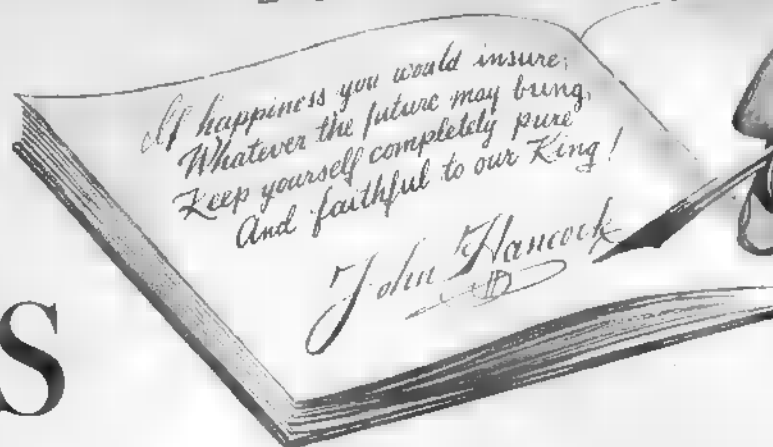 If happiness you would insure,
Whatever the future may bring,
Keep yourself completely pure
And faithful to our King!
John Hancock
S